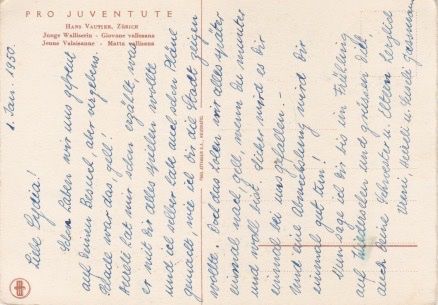 PRO JUVENTUTE
HANS VAUTIER, ZÜRICH
Junge Walliserin - Giovane vallesana
Jeune Valaisanne - Matta vallisana
1. Jan. 1950.
Liebe Lydia!
haben wir uns gefreut
auf deinen Besuch, aber vergebens.
Schade war das, gell!
hat mir schon erzählt, was
er mit dir alles spielen wollte
und ich selber hatte auch schon Pläne
gemacht wie ich dir die Stadt zeigen
wollte. Und das holen wir alles später
einmal nach gell, wenn du munter
und wohl bist. Sicher wird es dir
einmal bei uns gefallen. -
Und eine Abwechslung wird dir
einmal gut tun!
Nun sage ich dir bis im Frühling
auf Wiedersehen und grüssen dich
auch deine Schwester u. Eltern herzlich